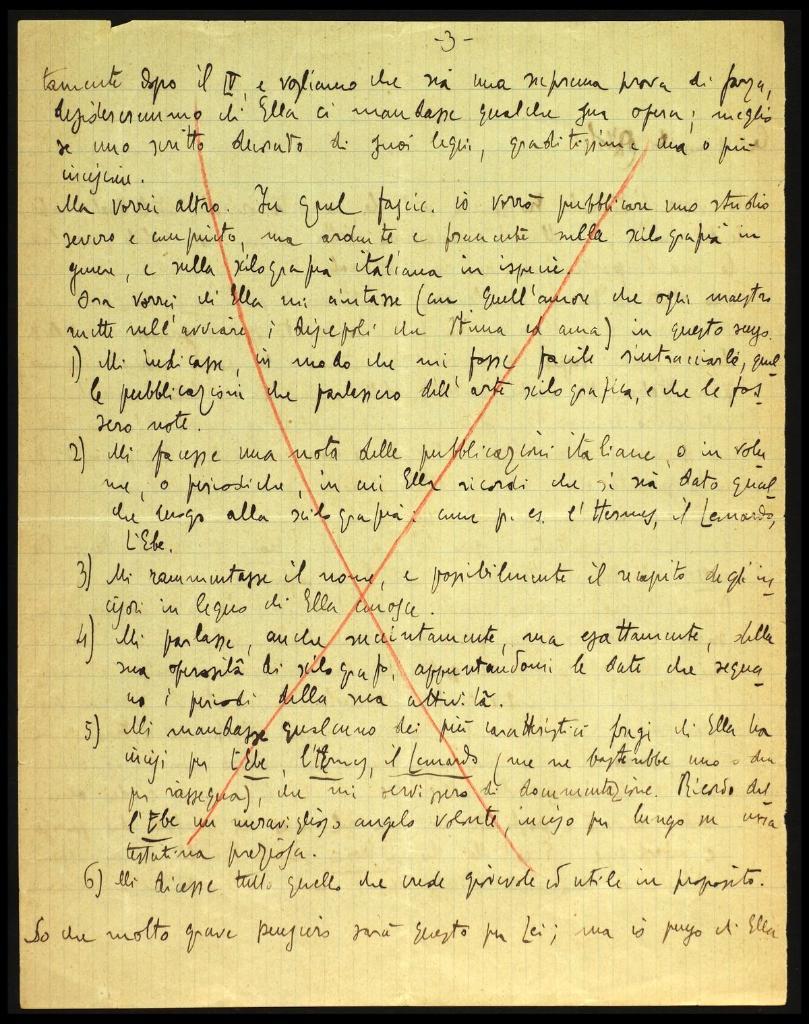 -3-
tamente dopo il IV, e vogliamo che sia una suprema prova di forza,
desidereremmo ch'Ella ci mandasse qualche sua opera; meglio
se uno scritto decorato di suoi legni, graditissime due o più
incisioni.
Ma vorrei altro. In quel fascic. io vorrò pubblicare uno studio
severo e compiuto, ma ardente e fremente sulla xilografia in
genere, e sulla xilografia italiana in ispecie.
Ora vorrei ch'Ella mi aiutasse (con quell'amore che ogni maestro
mette nell'avviare i discepoli che stima ed ama) in questo senso.
1) Mi indicasse, in modo che mi fosse facile rintracciarle, quel
le pubblicazioni che parlassero dell'arte xilografica, e che le fos-
sero note.
2) Mi facesse una nota delle pubblicazioni italiane, o in volu
me, o periodiche, in cui Ella ricordi che si sia dato qual
che luogo alla xilografia: come p. es. l'Hermes, il Leonardo,
L'Ebe.
3) Mi rammentasse il nome, e possibilmente il recapito degli in-
cisori in legno ch'Ella conosce.
4) Mi parlasse, anche succintamente, ma esattamente, della
sua operosità di xilografo, appuntandomi le date che segna
no i periodi della sua attività.
5) Mi mandasse qualcuno dei più caratteristici fregi ch'Ella ha
incisi per L'Ebe, l'Hermes, il Leonardo (me ne basterebbe uno o due
per rassegna), che mi servissero di documentazione. Ricordo del
l'Ebe un meraviglioso angelo volante, inciso per lungo su una
testatina preziosa.
6) Mi dicesse tutto quello che crede giovevole ed utile in proposito.
So che molto grave pensiero sarà questo per Lei; ma io prego ch'Ella